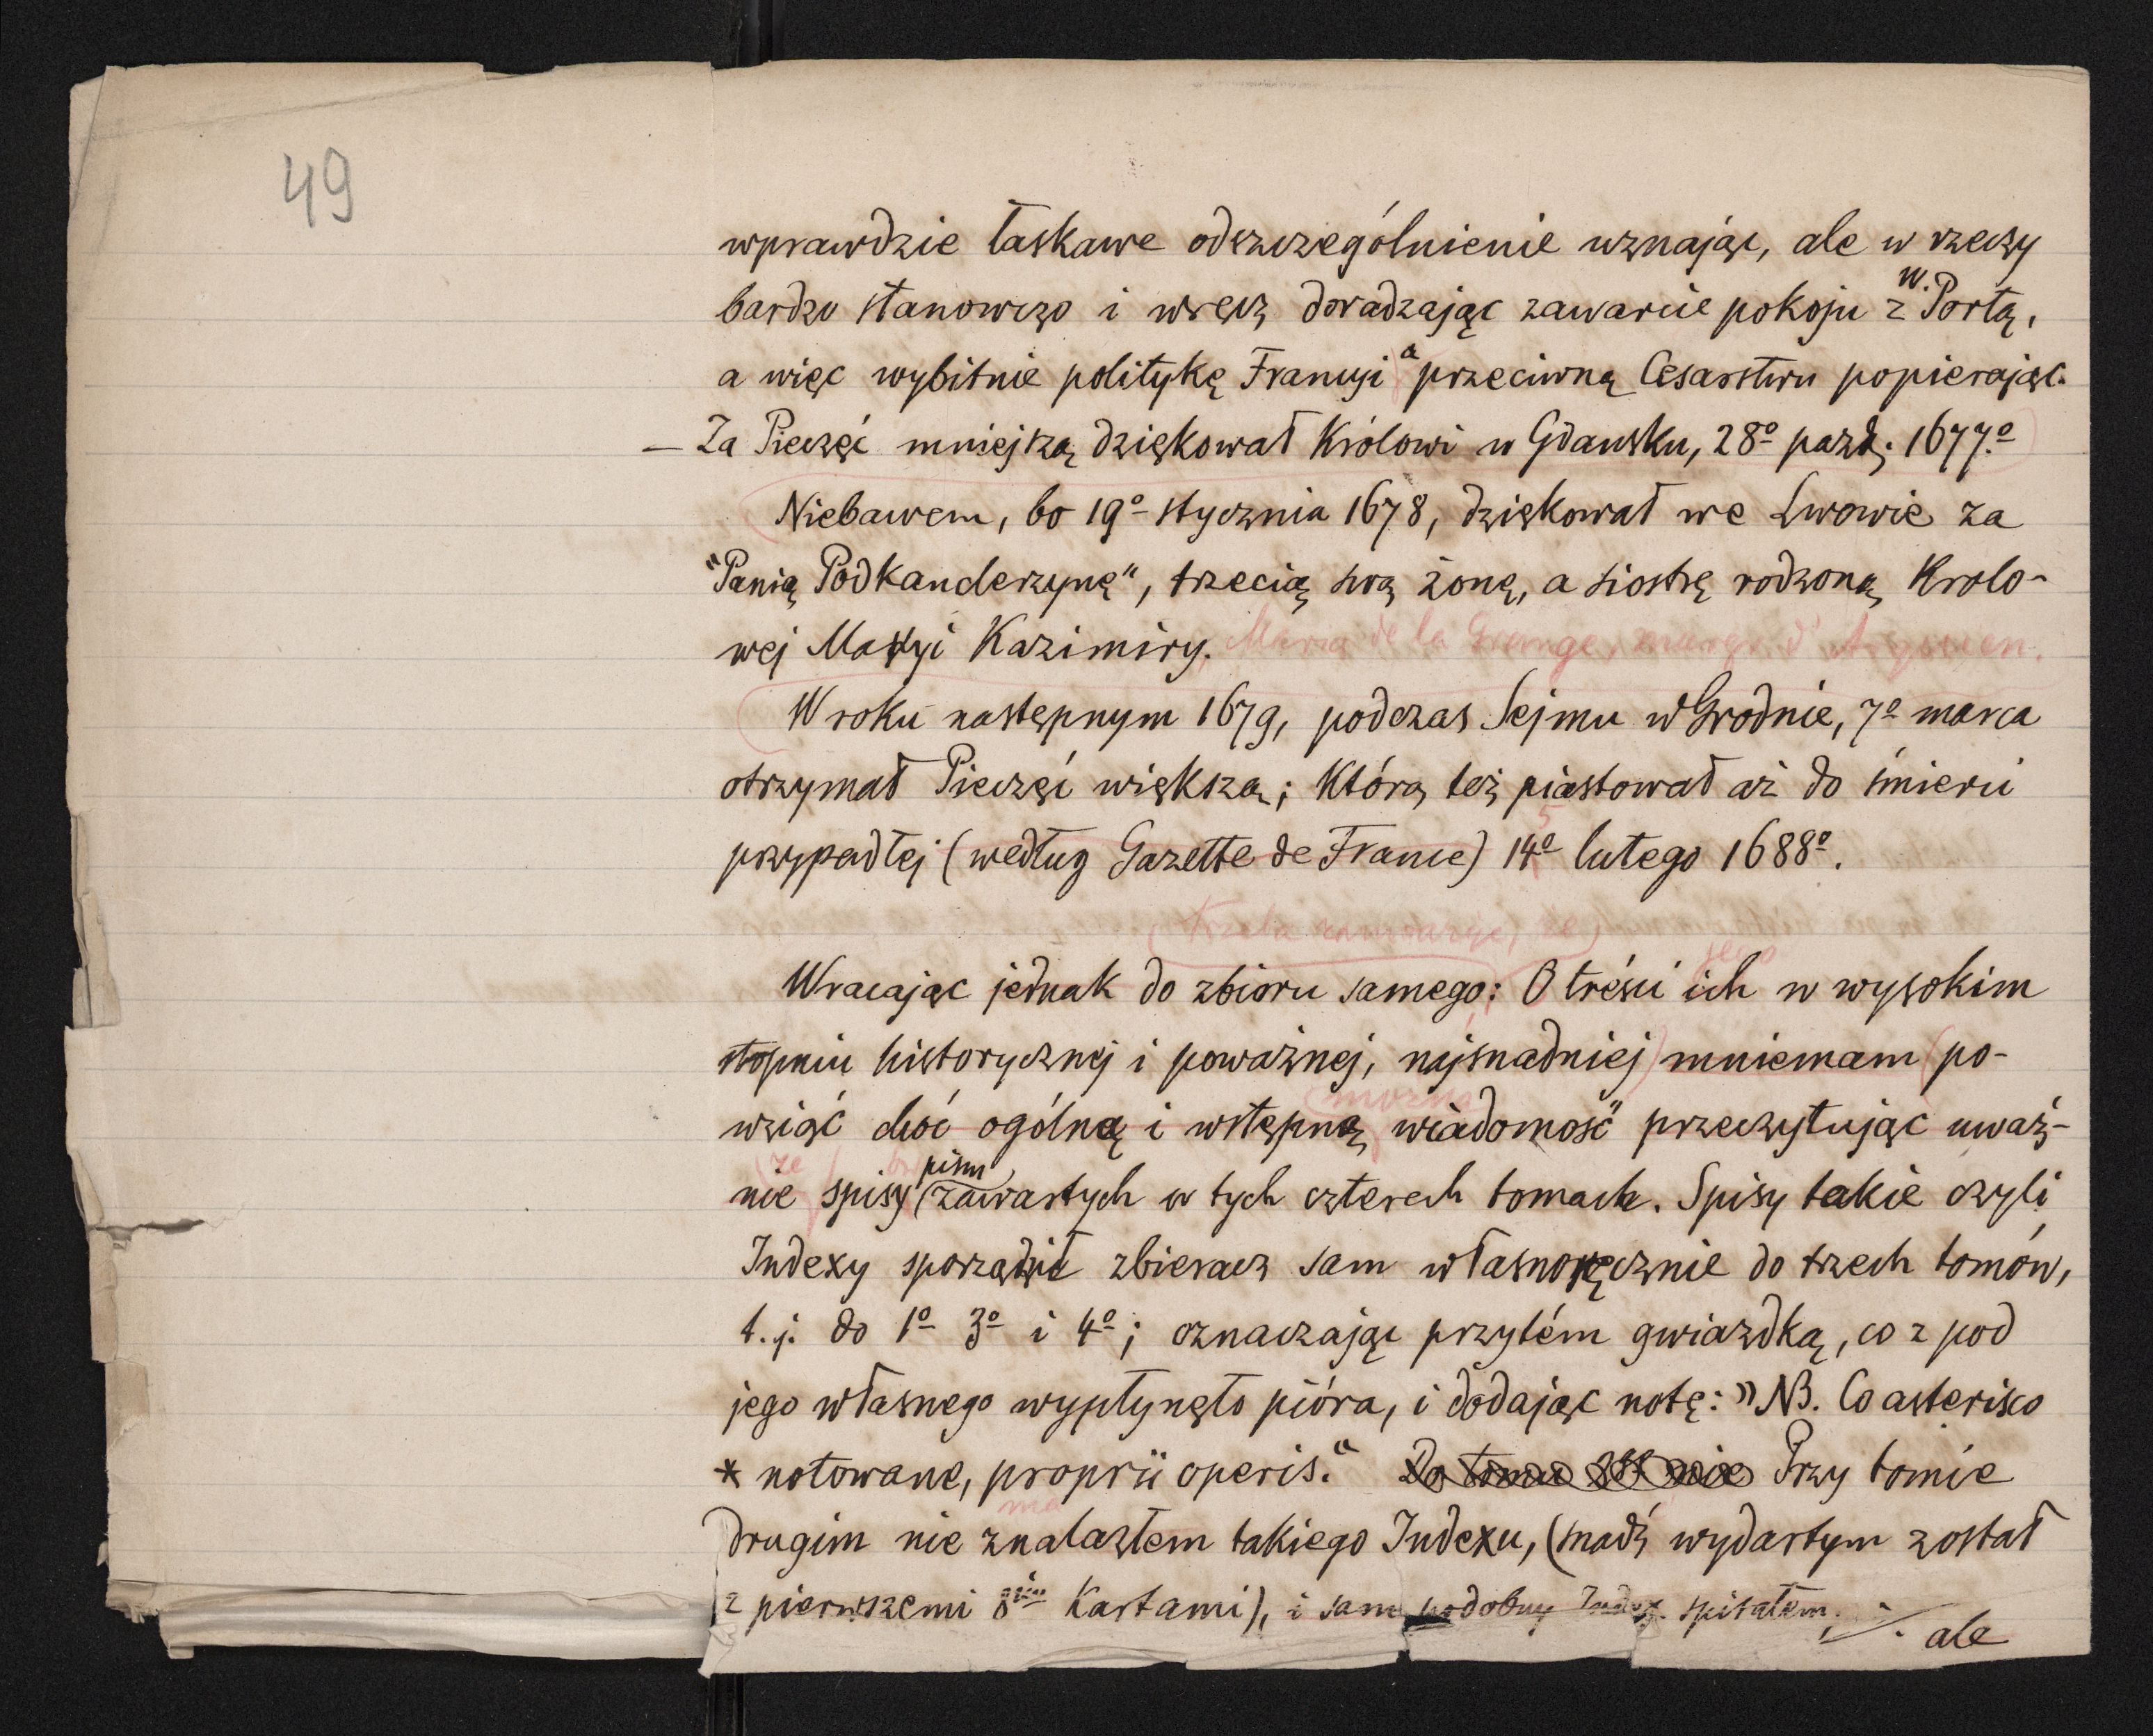 49
wprawdzie łaskawe odszczególnienie uznając, ale w rzeczy
bardzo stanowczo i wręcz doradzając zawarcie pokoju z W. Portą,
a więc wybitnie politykę Francyi a przeciwną Cesarstwu popierając.
— Za Pieczęć mniejszą dziękował Królowi w Gdańsku, 28º paźdz. 1677.º
Niebawem, bo 19º stycznia 1678, dziękował we Lwowie za
"Panią Podkanclerzynę", trzecią swą żonę, a siostrę rodzoną Krolo-
wej Maryi Kazimiry. Maria de la Grange, d'Arquien.
W roku następnym 1679, podczas Sejmu w Grodnie, 7º marca
otrzymał Pieczęć większą; którą też piastował aż do śmierci
przypadłej (według Gazette de France) 14º lutego 1688º.
Wracając jednak do zbioru samego: O treści ich jego w wysokim
stopniu historycznej i poważnej, najsnadniej mniemam po-
można
wziąć choć ogólną i wstępną wiadomość przeczytując uważ-
nie spisy pism zawartych w tych czterech tomach. Spisy takie czyli
Indexy sporządził zbieracz sam własnoręcznie do trzech tomów,
t.j. do 1º 3º i 4º; oznaczając przytém gwiazdką, co z pod
jego własnego wypłynęło pióra, i dodając notę: "NB. Co asterisco
* notowane, proprii operis." Do tomu III nie Przy tomie
drugim nie znalazłem takiego Indexu, (snadź wydartym został
z pierwszemi 8ią Kartami), i sam podobny Index spisałem;
ale